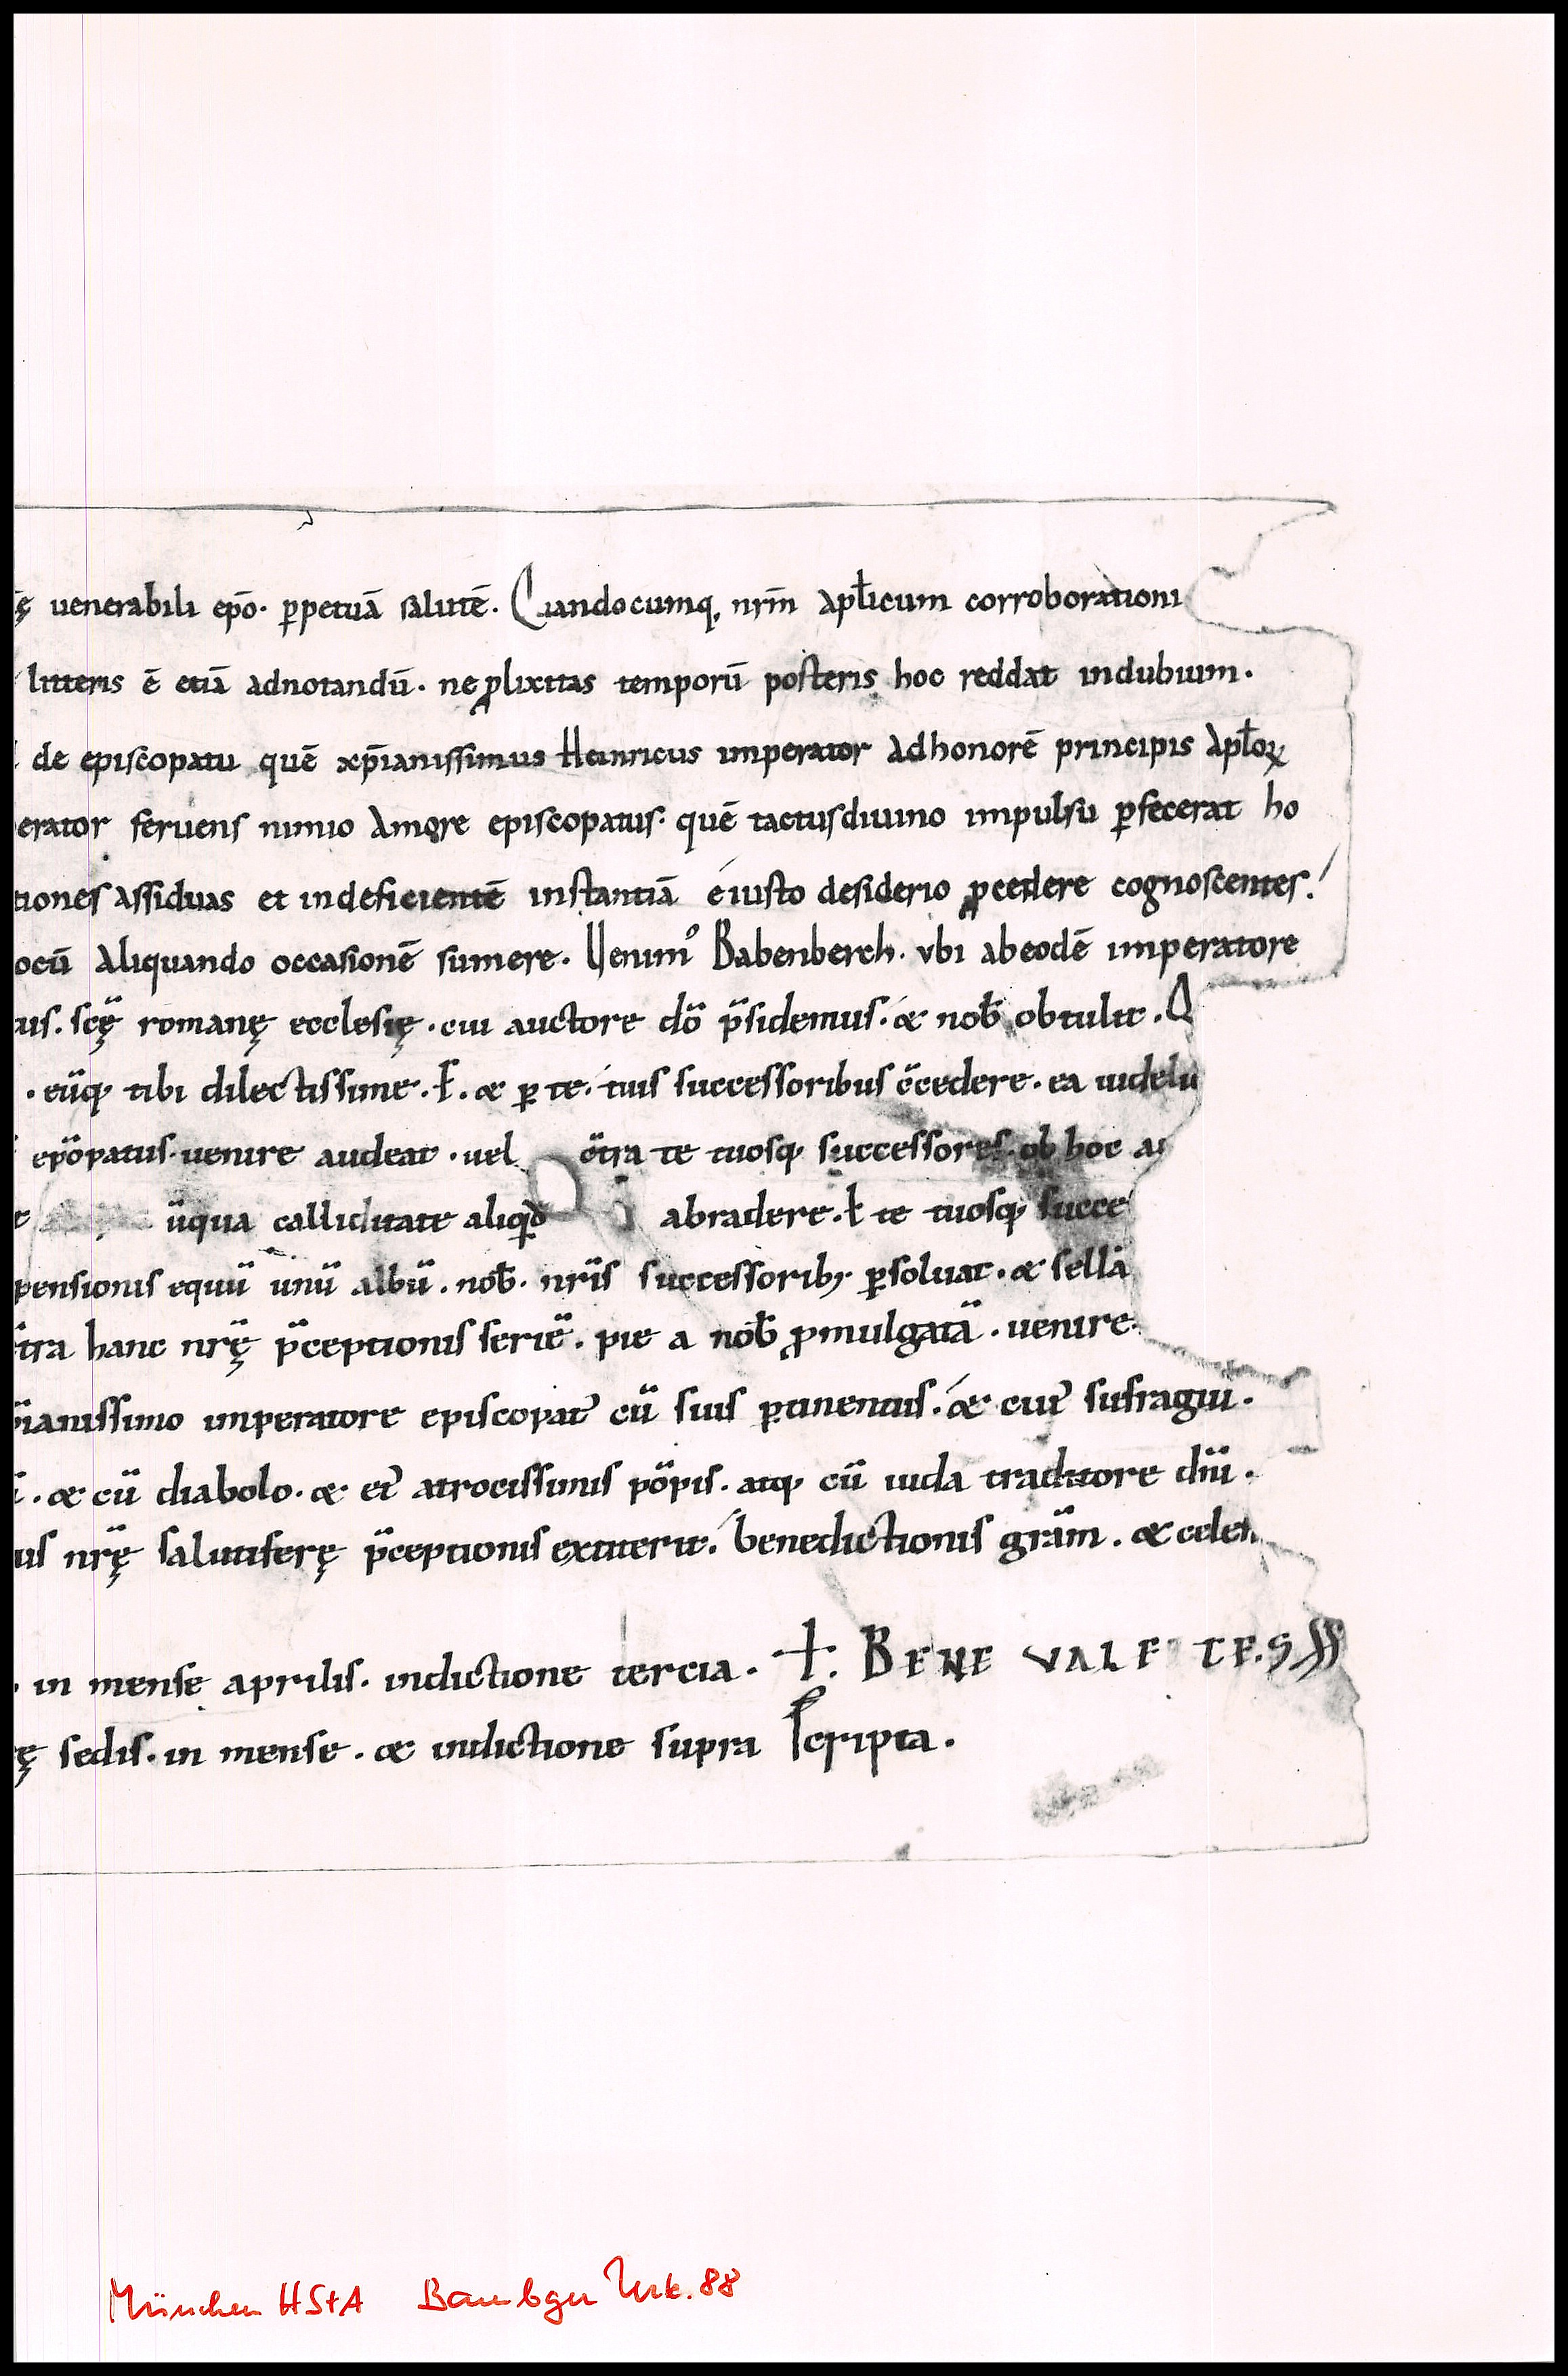 ę uenerabili ep̄o. ꝑpetuā salutē. Quandocumq, nr̄m apłicum corroborationi
litteris ē etiā adnotandū. ne ꝓlixitas temporū posteris hoc reddat indubium.
de episcopatu quē xp̄ianissimus Heinricus imperator ad honorē principis apłoꝝ
erator feruens nimio amore episcopatus. quē tactus diuino impulsu ꝑfecerat ho
tiones assiduas et indeficientē instantiā é iusto desiderio ꝓcedere cognoscentes.
ocū aliquando occasionē sumere. Uenimꝰ Babenberch. vbi ab eodē imperatore
us. sc̄ę romanę ecclesię. cui auctore dō p̄sidemus. & nob̄ obtulit. Q
. eūq; tibi dilectissime. F. & ꝑ te. tuis successoribus c̄cedere. ea uidelu
ep̄opatus. uenire audeat. uel c̄tra te tuosq; successores. ob hoc
ūqua calliditate aliqd̄ abradere. ł te tuosq; succe
pensionis equū unū albū. nob̄. nr̄is successorib; ꝑsoluat. & sellā
tra hanc nr̄ę p̄ceptionis seriē. pie a nob̄ ꝓmulgatā. uenire
p̄ianissimo imperatore episcopatꝰ cū suis ꝑtinentiis. & eiuꝰ sufragiu.
. & cū diabolo. & eiꝰ atrocissimis pōpis. atq; cū iuda traditore dn̄i.
us nr̄ę salutiferę p̄ceptionis extiterit. benedictionis grām. & celen
. in mense aprilis. indictione tercia. +. BENE VALETE. SS
ę sedis. in mense. & indictione supra scripta.
München HStA Bambger Urk. 88